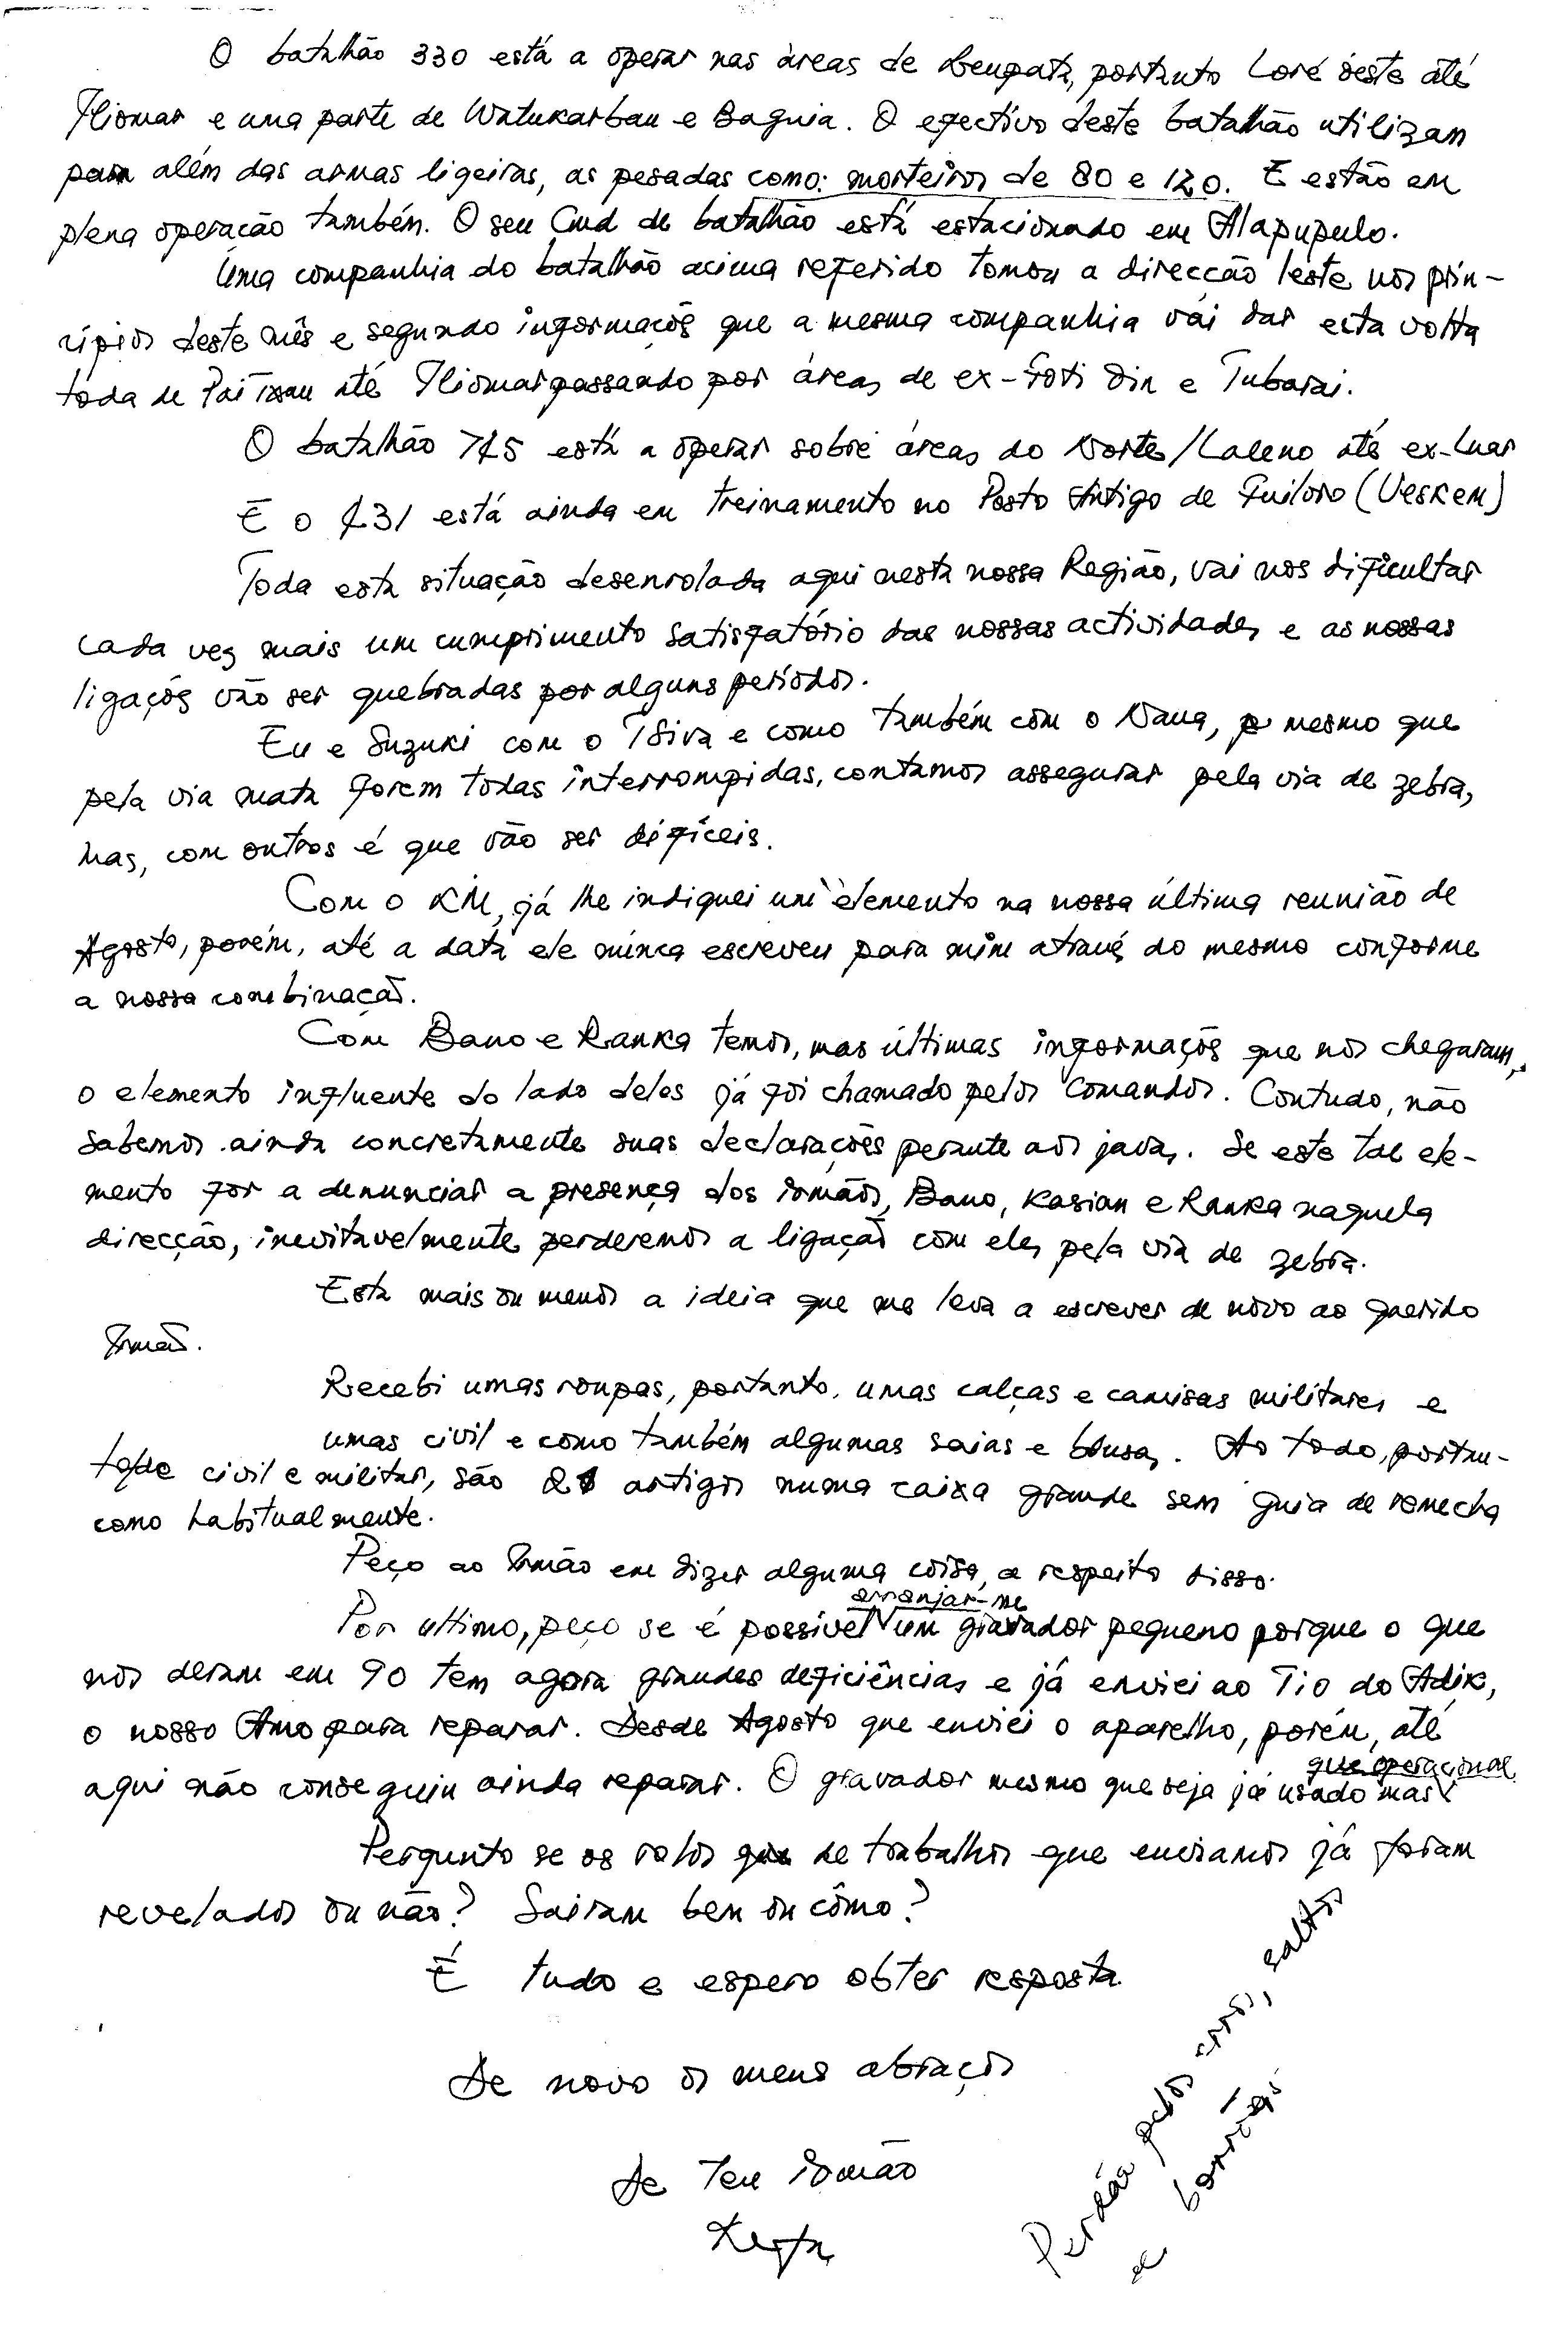 O batalhão 330 está a operar nas áreas de Leugata, portanto Loré oeste até
Iliomar e uma parte de Watukarbau e Baguia. O efectivo deste batalhão utilizam
para além das armas ligeiras, as pesadas como: morteiros de 80 e 120. E estão em
plena operação também. O seu Cmd de batalhão está estacionado em Alapupulo.
Uma companhia do batalhão acima referido tomou a direcção leste nos prin-
cípios deste mês e segundo informaçõs que a mesma companhia vai dar esta volta
toda de até Iliomar passando por áreas de ex-Foti Din e Tubarai.
O batalhão 745 está a operar sobre áreas do Norte/Laleno até ex-Luar
E o 431 está ainda em treinamento no Posto Antigo de Fuiloro (Veskem)
Toda esta situação desenrolada aqui nesta nossa Região, vai nos dificultar
cada vez mais um cumprimento satisfatório das nossas actividades e as nossas
ligaçõs vão ser quebradas por alguns períodos.
Eu e Suzuki com o e como também com o Naua, mesmo que
pela via mata forem todas interrompidas, contamos assegurar pela via de zebra,
mas, com outros é que vão ser difíceis.
Com o KM, já lhe indiquei um elemento na nossa última reunião de
Agosto, porém, até a data ele nunca escreveu para mim através do mesmo conforme
a nossa combinação.
Com Bano e Ranka temos, mas últimas informaçõs que nos chegaram,
o elemento influente do lado deles já foi chamado pelos Comandos. Contudo, não
sabemos ainda concretamente suas declarações perante aos javas. Se este tal ele-
mento for a denunciar a presença dos irmãos, Bano, Kasian e Ranka naquela
direcção, inevitavelmente perderemos a ligação com eles pela via de zebra.
Esta mais ou menos a ideia que me leva a escrever de novo ao querido
Irmão.
Recebi umas roupas, portanto, umas calças e camisas militares e
umas civil e como também algumas saias e blusas. Ao todo, portan-
to civil e militar, são artigos numa caixa grande sem guia de remecha
como habitualmente.
Peço ao Irmão em dizer alguma coisa a respeito disso.
Por ultimo, peço se é possível arranjar-me um gravador pequeno porque o que
nos deram em 90 tem agora grandes deficiências e já enviei ao Tio do Adik,
o nosso Amo para reparar. Desde Agosto que enviei o aparelho, porém, até
aqui não conseguiu ainda reparar. O gravador mesmo que seja já usado mas que operacional
Pergunto se os rolos de trabalhos que enviamos já foram
revelados ou não? Sairam bem ou cômo?
É tudo e espero obter resposta
De novo os meus abraços
De Teu irmão
Perdão pelos erros, saltos
e borrões